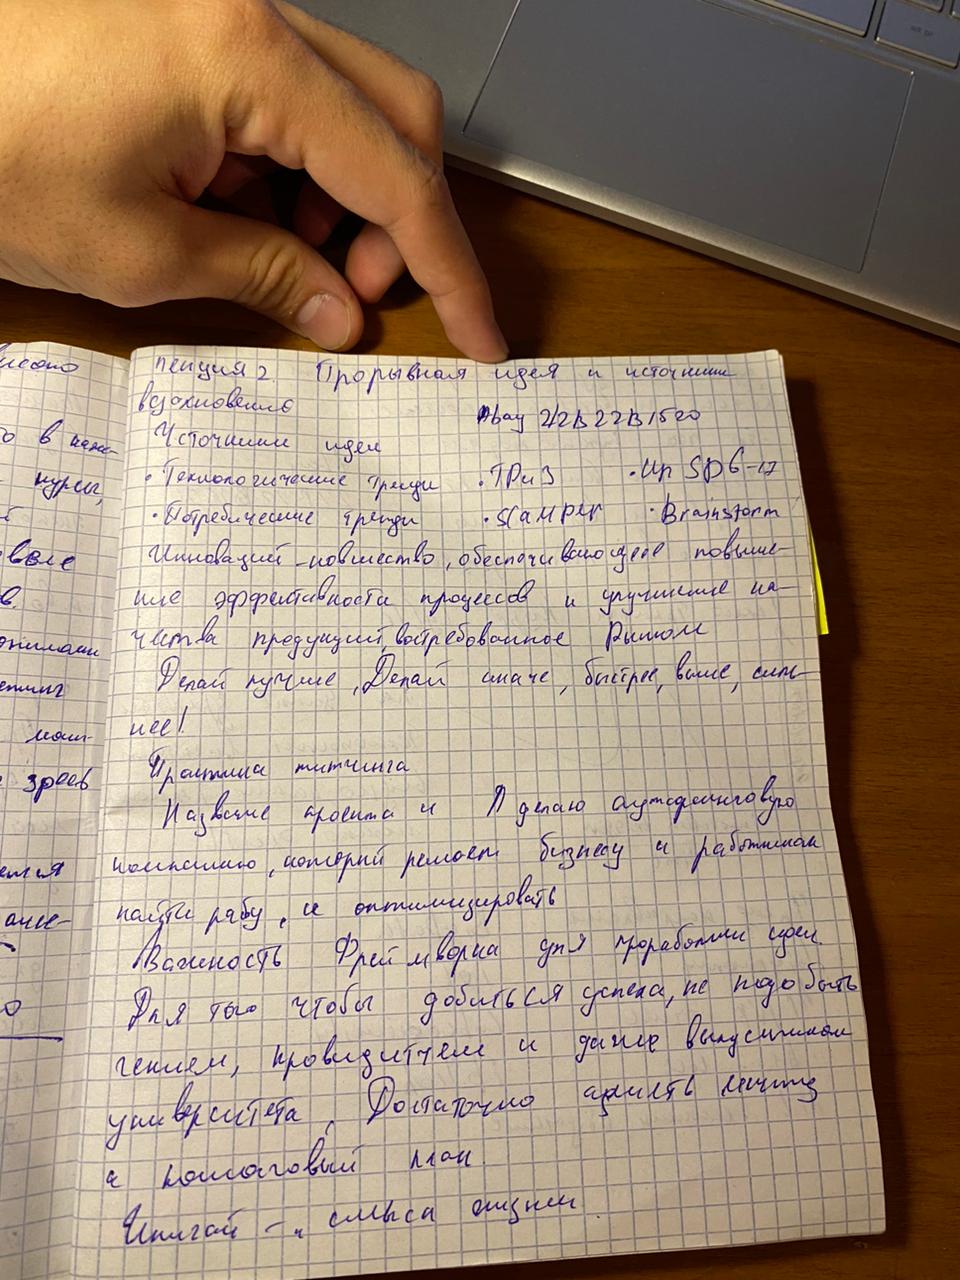 лекция 2. Прорывная идея и источники
вдохновение
Abay 22B22B1520
Источники идеи
• Технологические тренды • ТРиЗ • ЦУР SDG-17
• Потребические тренды • SCaMPER • Brainstorm
Инноваций - новшество, обеспечивающее повыше-
ние эффективности процессов и улучшение ка-
чества продукций, востребованное рынком
Делай лучше, Делай иначе, быстрее, выше, силь-
нее!
Практика питчинга
Название проекта и Я делаю аутсорсинговую
компанию, который помогает бизнесу и работникам
найти рабу, и оптимизировать
Важность Фреймворка для проработки идеи
Для того чтобы добиться успеха, не надо быть
гением, провидитчем и даже выпускником
университета, Достаточно иметь мечту
и пошаговый план.
Икигай - "смысл жизни
исоко
о в каж-
курсы,
вые
в
маш-
зреев
о